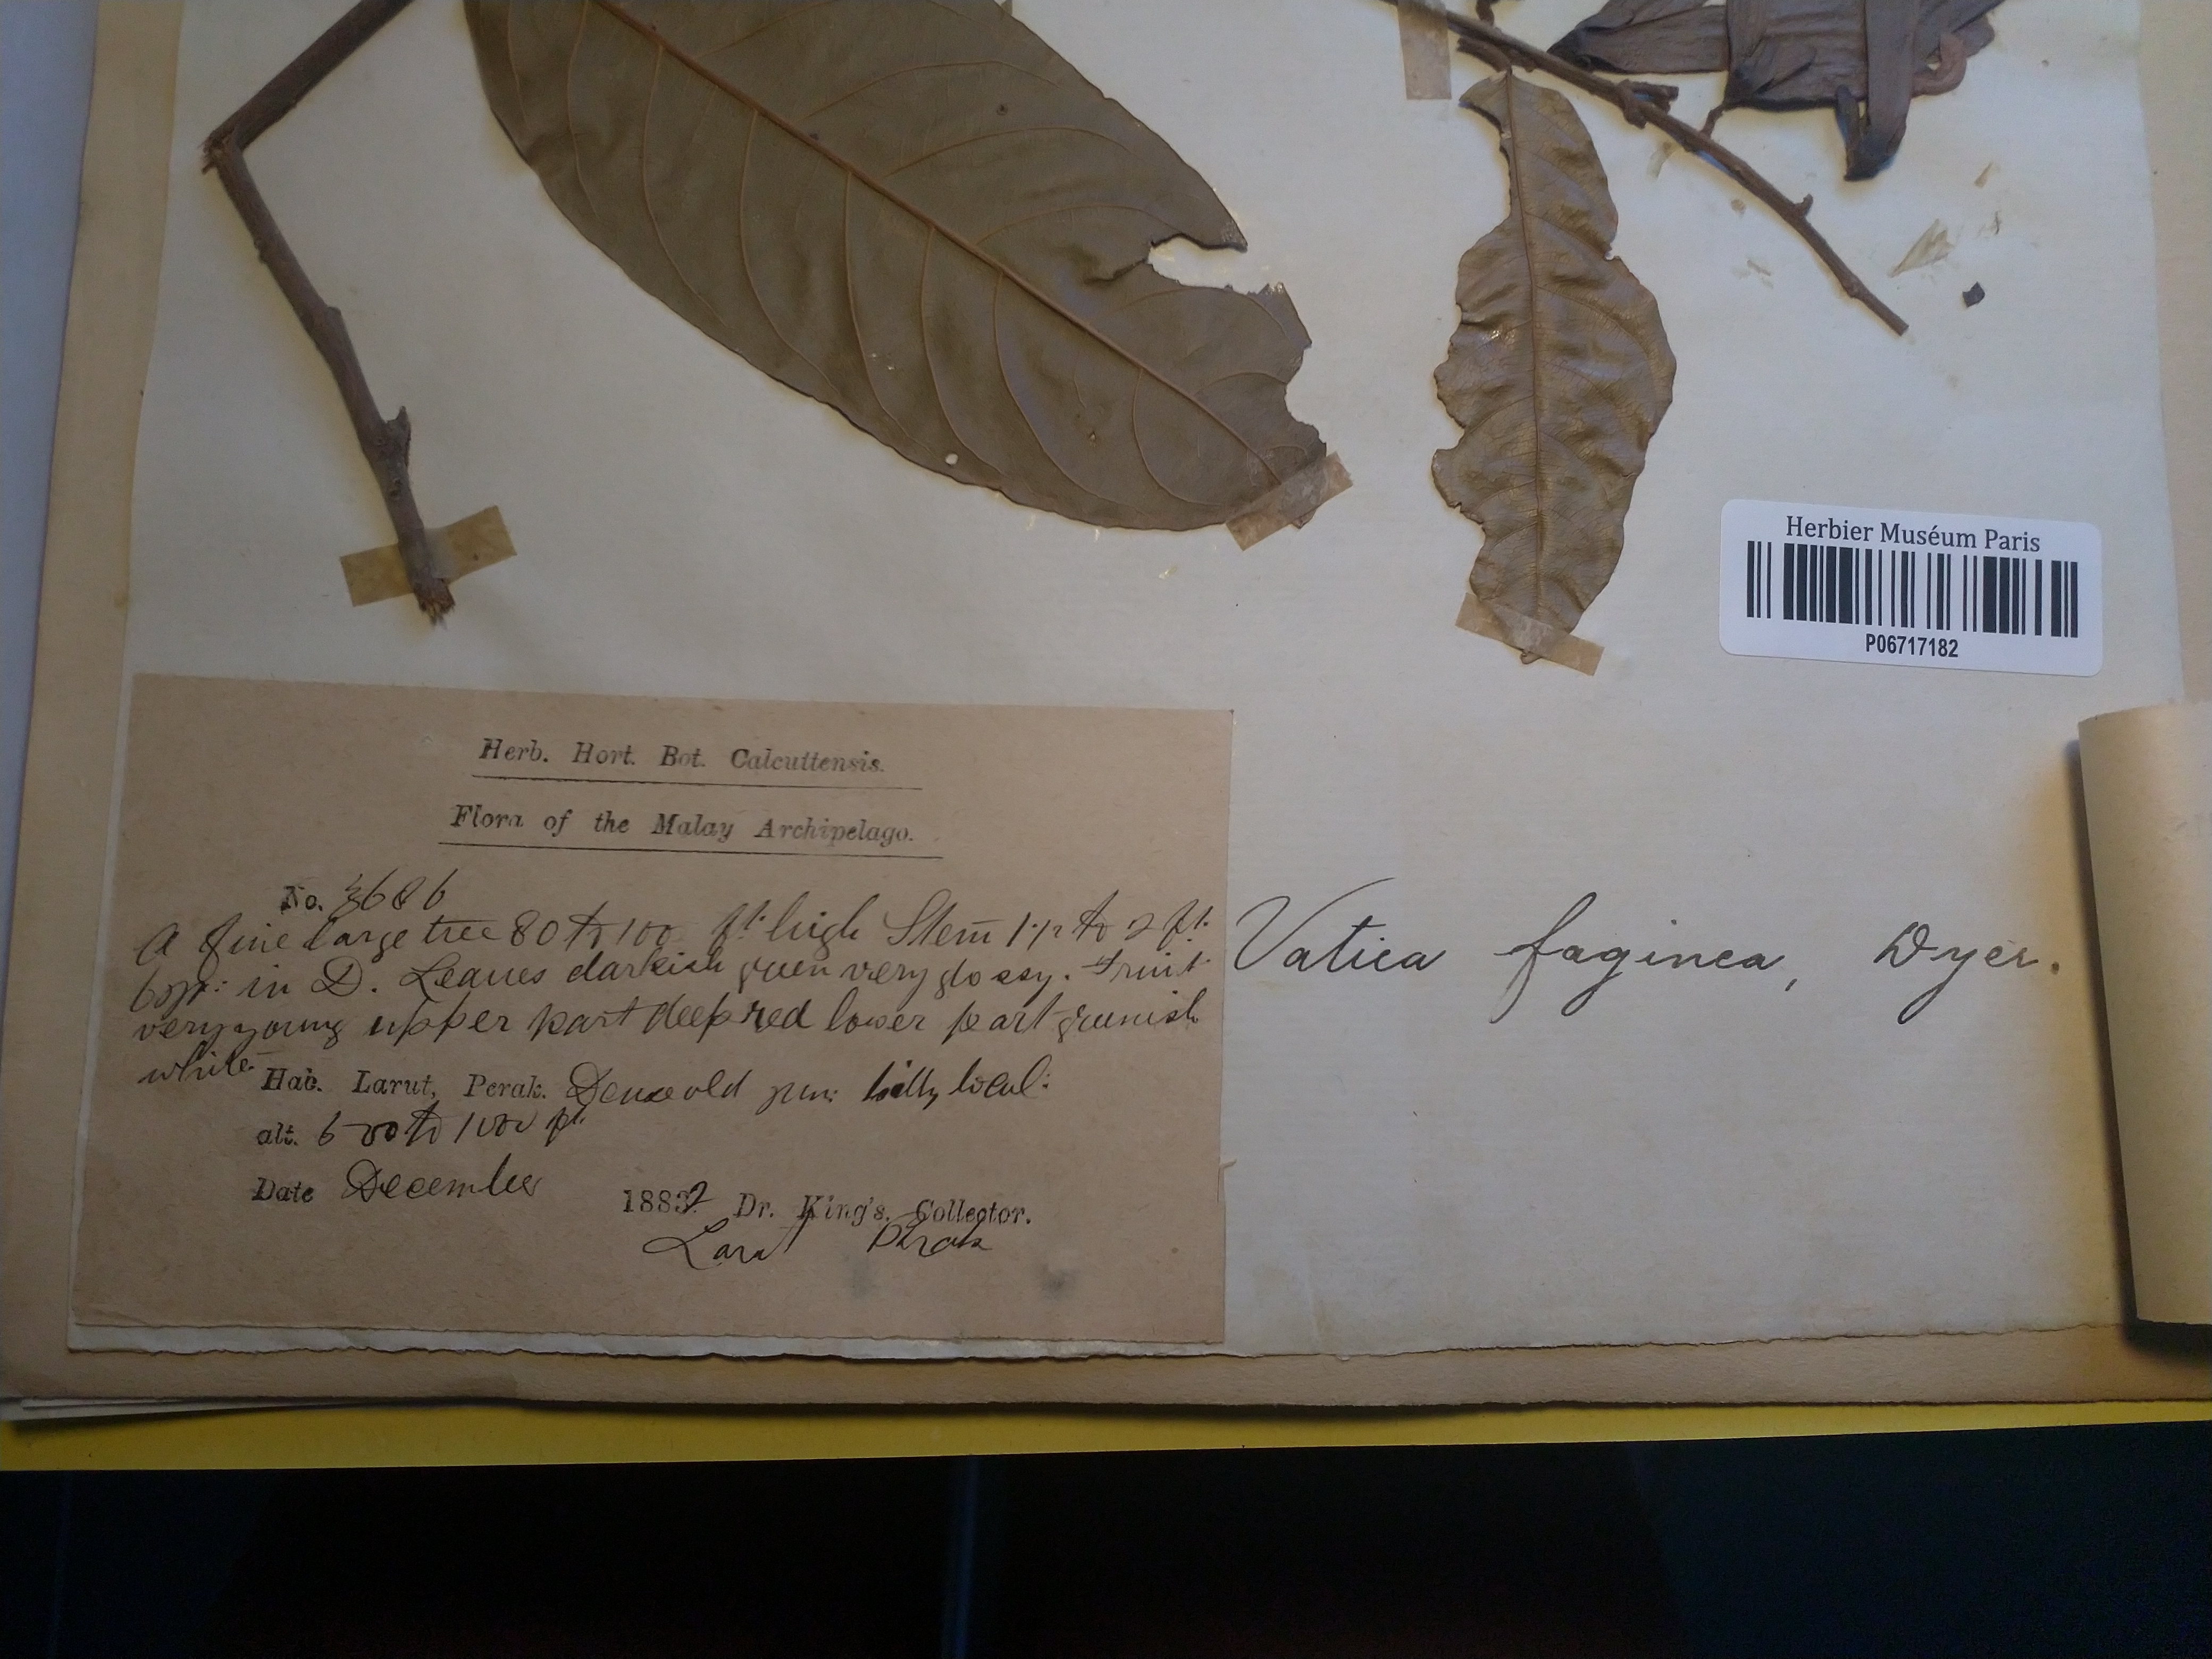 Herbier Muséum Paris
P06717182
Herb. Hort. Bot. Calcuttensis.
Flora of the Malay Archipelago.
No. 3686
A fine large tree 80 to 100 ft. high Stem 1½ to 2 ft.
in D. Leaves darkish green very glossy. Fruit
very young upper part deep red lower part greenish
white
Hab. Larut, Perak. Dense old jun: hilly local:
alt. to 1000 ft.
Date December 1882 Dr. King's Collector.
Larut Perak
Vatica faginea, Dyer.